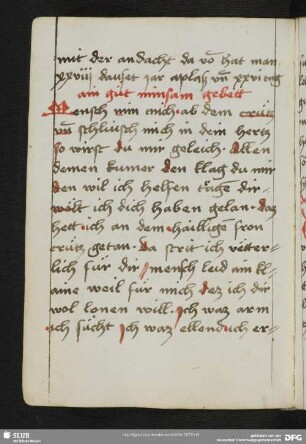 mit der andacht da vō hat man
xxviij dauset jar aplaß vn̄ xxvi tag
ain gut minsam gebett
Mensch nim mich ab dem creutz
vn̄ schlüsch mich in dein hertz
so wirst du mir geleich · Allen
deinen kumer den klag du mir
den wil ich helfen trage dir ·
wolt ich dich haben gelan · daz
hett ich an dem hailligen fron
creutz getan · da strit ich ritter-
lich für dir mensch leid ain kl-
aine weil für mich dez ich dir
wol lonen will · Ich waz arm
ich sucht ich waz ellend ich er-
SLUB
DFG